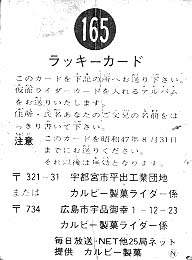 165
ラッキーカード
このカードを下記の所へお送り下さい。
仮面ライダーカードを入れるアルバム
をお送りいたします。
住所・氏名あなたのご父兄の名前をは
っきり書いて下さい。
注意 このカードを昭和47年8月31日
までにお送りください。
それ以後は無効となります。
〒321-31 宇都宮市平出工業団地
または カルビー製菓ライダー係
〒734 広島市宇品御幸1-12-23
カルビー製菓ライダー係
毎日放送・NET他25局ネット
提供 カルビー製菓 N